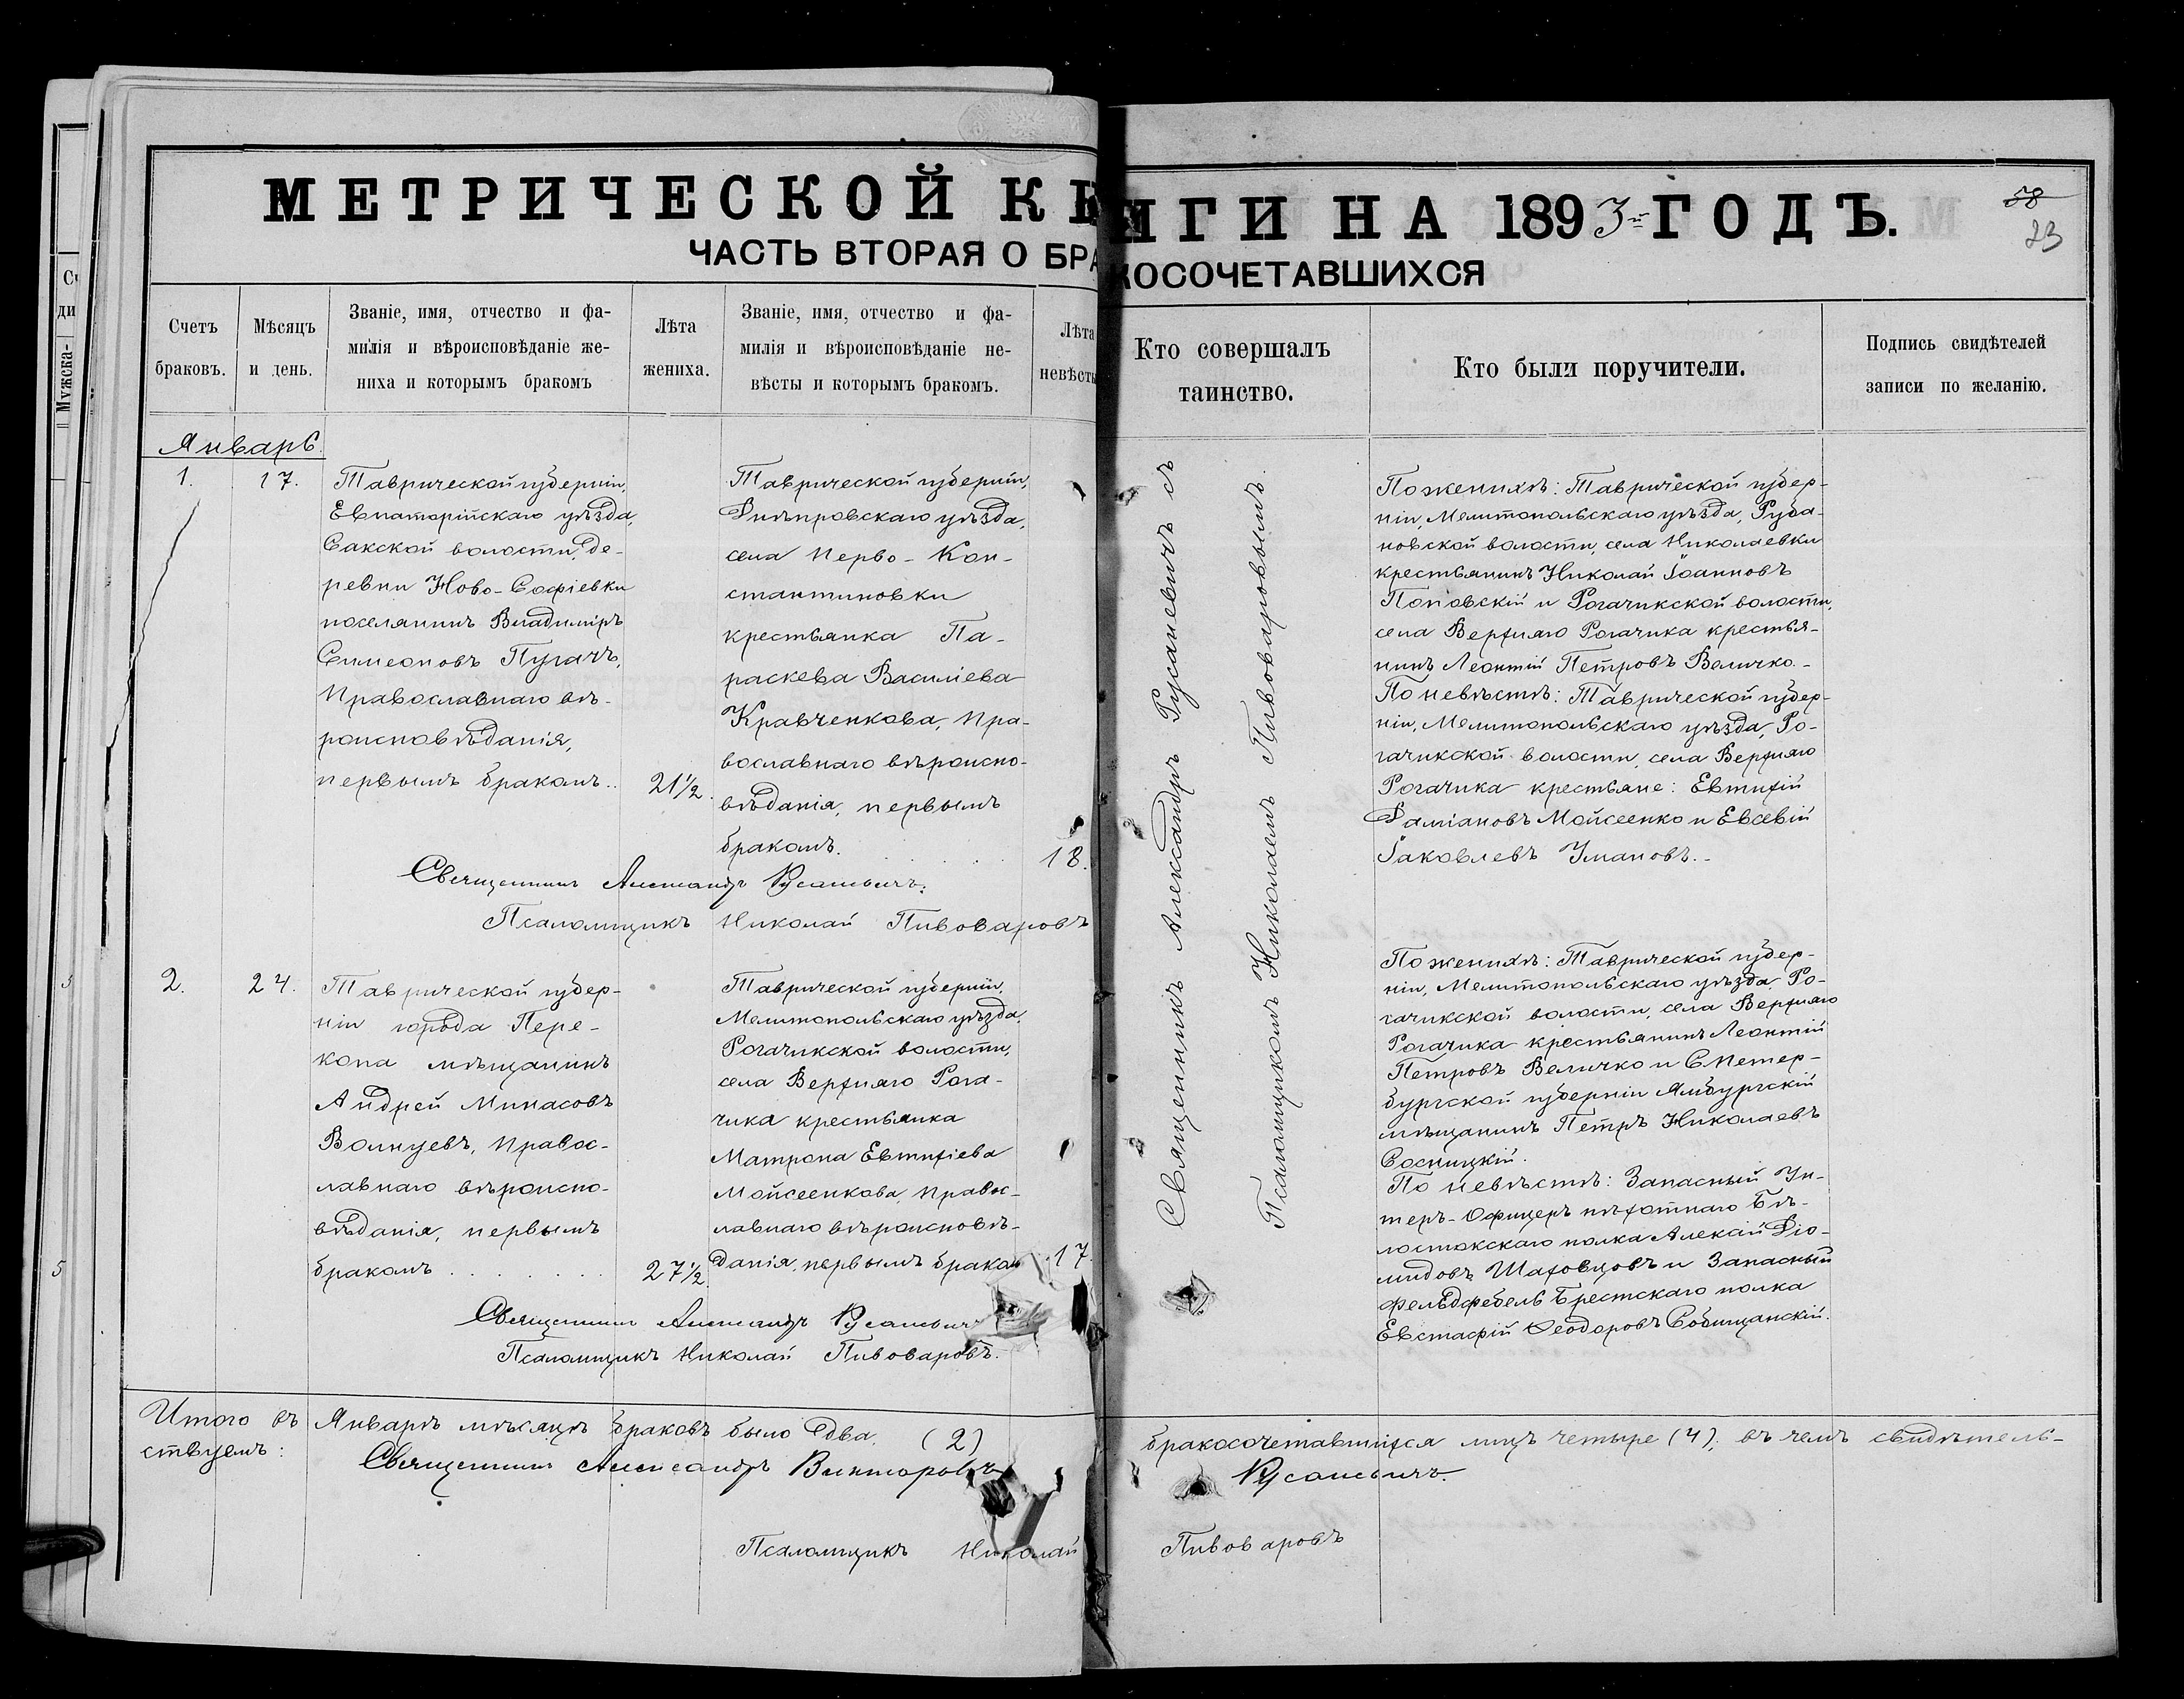 МЕТРИЧЕСКОЙ КНИГИ НА 1893-й ГОДЪ.
58
23
ЧАСТЬ ВТОРАЯ О БРАКОСОЧЕТАВШИХСЯ
Счетъ
браковъ.
Мѣсяцъ
и день.
Званіе, имя, отчество и фа-
милія и вѣроисповѣданіе же-
ниха и которымъ бракомъ
Лѣта
жениха.
Званіе, имя, отчество и фа-
милія и вѣроисповѣданіе не-
вѣсты и которымъ бракомъ.
Лѣта
невѣсты
Кто совершалъ
таинство.
Кто были поручители.
Подпись свидѣтелей
записи по желанію.
Мужска-
Январь.
1.
17.
Таврической губерніи,
Евпаторійскаго уѣзда,
Сакской волости, де-
ревни Ново-Софіевки
поселянинъ Владиміръ
Симеоновъ Пугачъ,
православнаго вѣ-
роисповѣданія,
первымъ бракомъ..
21½.
Таврической губерніи,
Днѣпровскаго уѣзда,
села Перво-Кон-
стантиновки
крестьянка Па-
раскева Василіева
Кравченкова, пра-
вославнаго вѣроиспо-
вѣданія, первымъ
бракомъ.
18.
Священникъ Александръ Русаневичъ.
Псаломщикъ Николай Пивоваровъ
Священникъ Александръ Русаневичъ съ
Псаломщикомъ Николаемъ Пивоваровымъ.
По женихѣ: Таврической губер-
ніи, Мелитопольскаго уѣзда, Руба-
новской волости, села Николаевки
крестьянинъ Николай Іоанновъ
Поповскій и Рогачикской волости,
села Верхняго Рогачика крестья-
нинъ Леонтій Петровъ Величко.-
По невѣстѣ: Таврической губер-
ніи, Мелитопольскаго уѣзда, Ро-
гачикской волости, села Верхняго
Рогачика крестьяне: Евтихій
Даміановъ Мойсеенко и Евсевій
Іаковлевъ Умановъ.-
2.
24.
Таврической губер-
ніи города Пере-
копа мѣщанинъ
Андрей Минасовъ
Волнуевъ, правос-
лавнаго вѣроиспо-
вѣданія, первымъ
бракомъ
27½.
Таврической губерніи,
Мелитопольскаго уѣзда,
Рогачикской волости,
села Верхняго Рога-
чика крестьянка
Матрона Евтихіева
Мойсеенкова, правос-
лавнаго вѣроисповѣ-
данія, первымъ бракомъ
17.
Священникъ Александръ Русаневичъ
Псаломщикъ Николай Пивоваровъ.
По женихѣ: Таврической губер-
ніи, Мелитопольскаго уѣзда, Ро-
гачикской волости, села Верхняго
Рогачика крестьянинъ Леонтій
Петровъ Величко и С.Петер-
бургской губерніи Ямбургскій
мѣщанинъ Петръ Николаевъ
Сосницкій.
По невѣстѣ: Запасный Ун-
теръ-Офицеръ пѣхотнаго Бѣ-
лостокскаго полка Алексій Діо-
мидовъ Шаховцовъ и Запасный
фельдфебель Брестскаго полка
Евстафій Феодоровъ Собищанскій.
Итого въ Январѣ мѣсяцѣ браковъ было два (2) бракосочетавшихся лицъ четыре (4): въ чемъ свидѣтель-
ствуемъ:
Священникъ Александръ Викторовъ Русаневичъ.
Псаломщикъ Николай Пивоваровъ